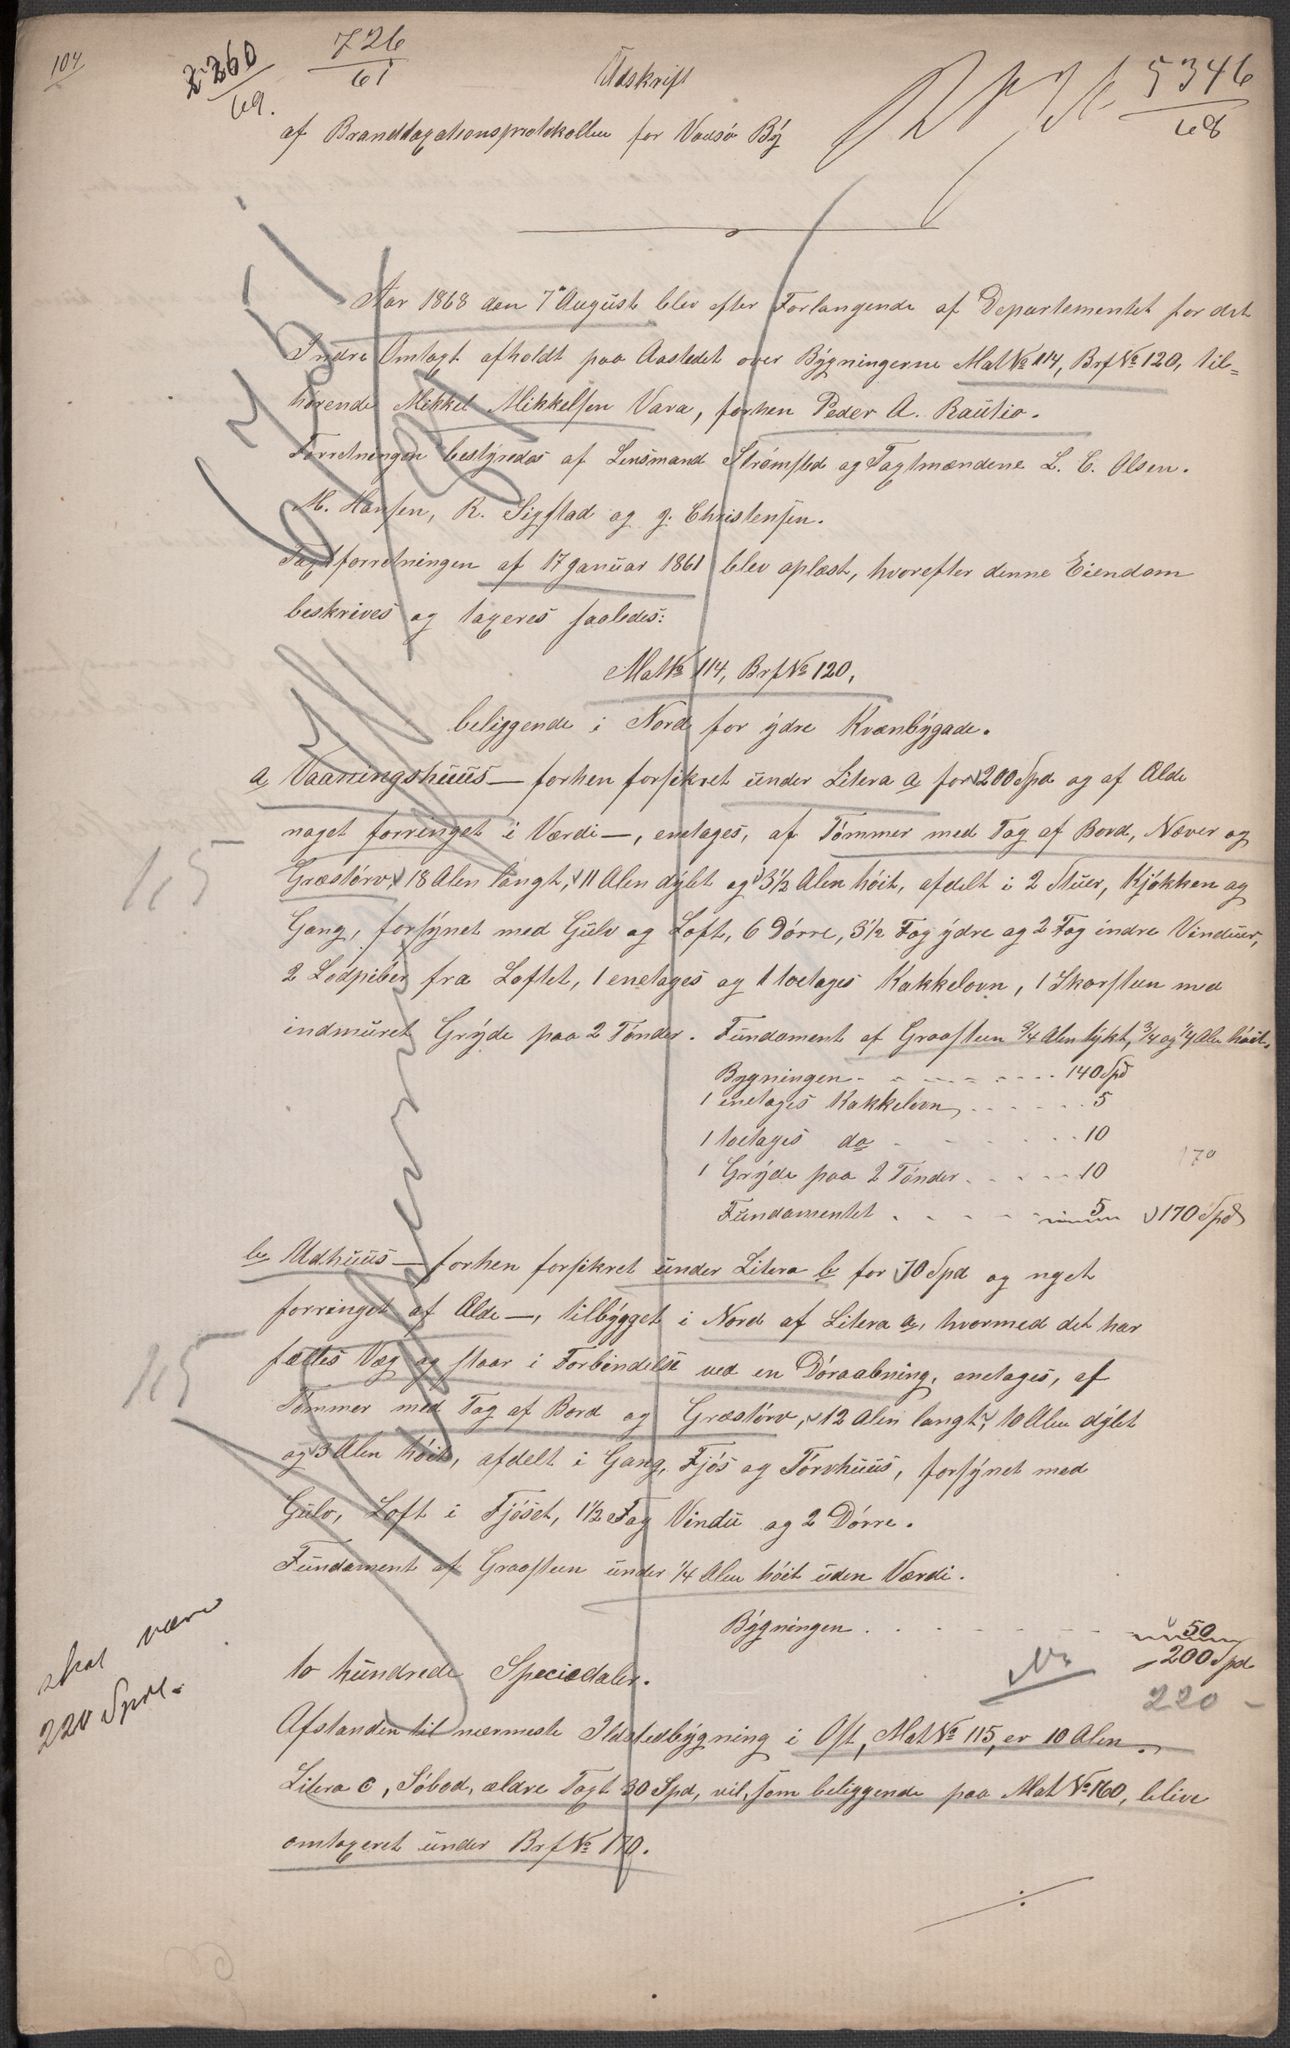 104
2260
69.
726
61
5346
68
Udskrift
af Branddtaxationsprotokollen for Vadsø By
Aar 1868 den 7de August blev efter Forlangende af Departementet for det
Indre Omtaxt afholdt paa Aastedet over Bygningerne Mat№ 114, Brf№ 120, til=
hørende Mikkel Mikkelsen Vara, forhen Peder A. Rautio.
Forretningen bestyredes af Lensmand Strømsted og Taxtmændene L. C. Olsen.
M. Hansen, R. Sigstad og J. Christensen.
Taxtforretningen af 17 Januar 1861 blev oplæst, hvorefter denne Eiendom
beskrives og taxeres saaledes:
Mat№ 114, Brf№ 120,
beliggende i Nord for ydre Kvænbygade.
a Vaaningshuus — forhen forsikret under Litera a for 200 Spd og af Ælde
noget forringet i Værdi —, enetages, af Tømmer med Tag af Bord, Næver og
Græstørv, 18 Alen langt, 11 Alen dybt og 3½ Alen høit, afdelt i 2 Stuer, Kjøkken og
Gang, forsynet med Gulv og Loft, 6 Dørre, 3½ Fag ydre og 2 Fag indre Vinduer,
2 Lodpiber fra Loftet, 1 enetages og 1 toetages Kakkelovn, 1 Skorsteen med
indmuret Gryde paa 2 Tønder. Fundament af Graasteen ¾ Alen tykt, ¾ og ¼ Alen høit.
115
Bygningen . . . . . . 140 Spd
1 enetages Kakkelovn . . . . . 5
1 toetages do . . . . . 10
1 Gryde paa 2 Tønder . . . . 10
170
Fundamentet . . . . 5 170 Spd
b Udhuus — forhen forsikret under Litera b for 70 Spd og nget
forringet af Ælde —, tilbygget i Nord af Litera a, hvormed det har
fælles Væg og staar i Forbindelse ved en Døraabning, enetages, af
115
Tømmer med Tag af Bord og Græstørv, 12 Alen langt, 10 Alen dybt
og 3 Alen høit, afdelt i Gang, Fjøs og Tørvhuus, forsynet med
Gulv, Loft i Fjøset, 1½ Fag Vindu og 2 Dørre.
Fundament af Graasteen under ¼ Alen høit uden Værdi.
Bygningen . . . . . . 50
200 Spd
to hundrede Speciedaler.
220 –
skal være
220 Spdl.
Afstanden til nærmeste Ildstedbygning i Øst, Mat№ 115, er 10 Alen.
Litera c, Søbod, ældre Taxt 30 Spd, vil, som beliggende paa Mat№ 160, blive
omtaxeret under Brf№ 170.